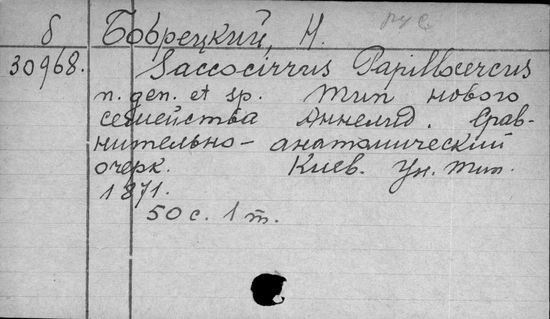 рус
б Бобрецкий, Н.
30968. Saccocirrus Papillocercus
n. gen. et sp. Тип нового
семейства Аннелид. Срав-
нительно-анатомический
очерк. Киев. Ун. тип.
1871.
50 с. 1 т.